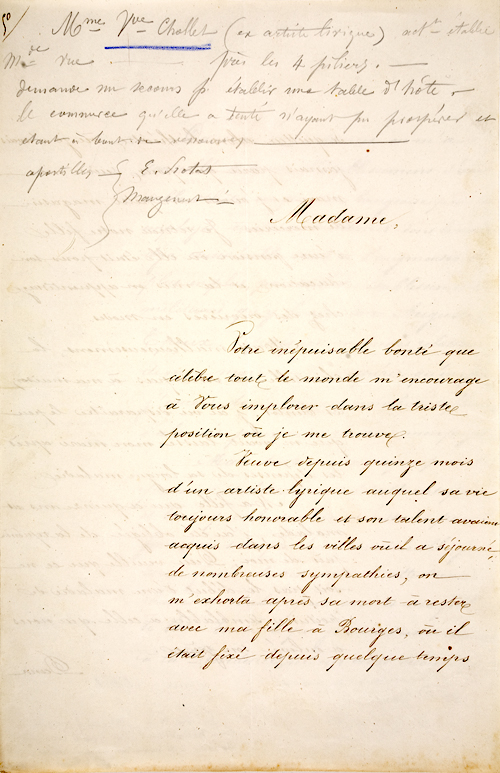 50/
Mme Vve Chollet (ex artiste lirique) act.t établie
Mde rue près les 4 piliers. —
demande un secours pr établir une table d'hôte,
le commerce qu'elle a tenté n'ayant pu prospérer et
étant à bout de ressources
apostilles
Madame,
Votre inépuisable bonté que
célèbre tout le monde m'encourage
à Vous implorer dans la triste
position où je me trouve.
Veuve depuis quinze mois
d'un artiste lyrique auquel sa vie
toujours honorable et son talent avaient
acquis dans les villes où il a séjourné,
de nombreuses sympathies, on
m'exhorta après sa mort à rester
avec ma fille à Bourges, où il
était fixé depuis quelque temps